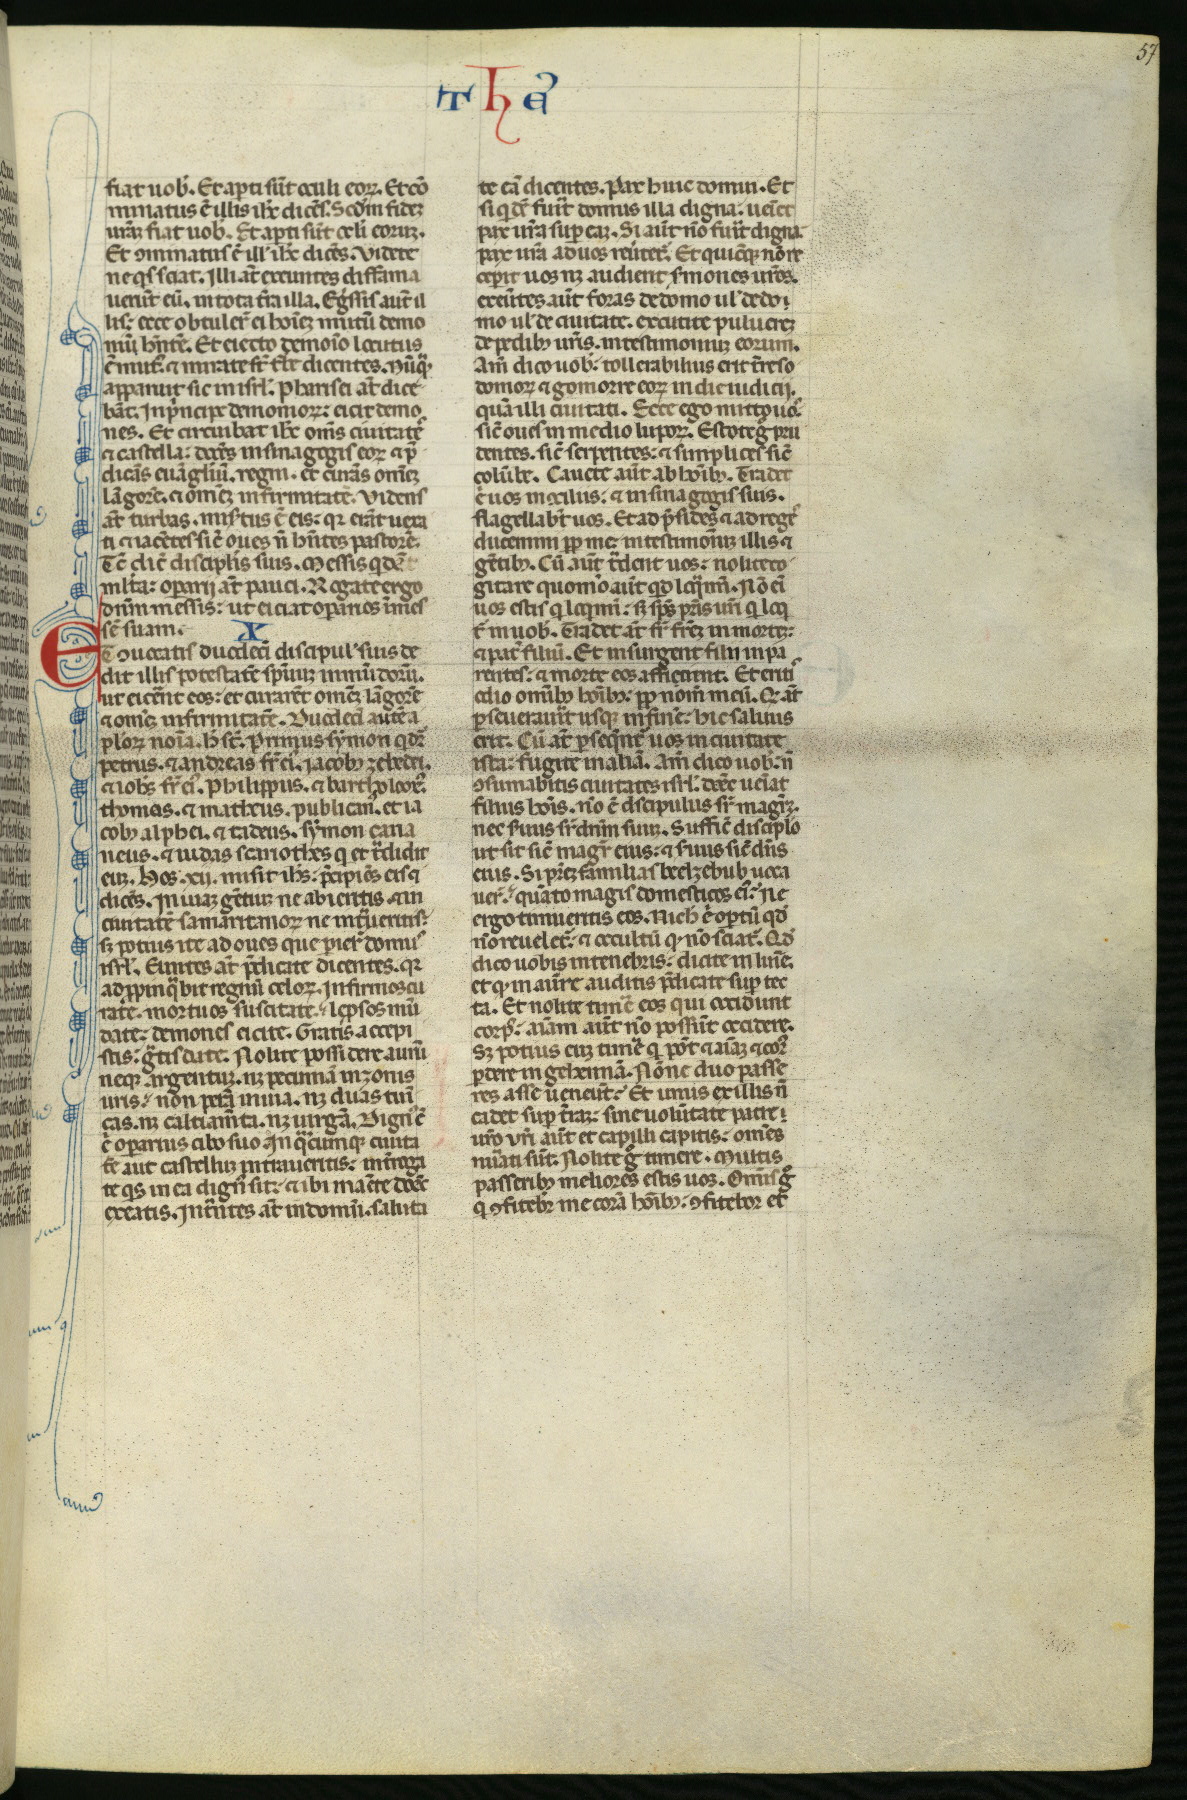 57
T h E᷒
fiat uob̾. Et aꝑti sūt oculi eoꝝ. Et cō
minatus ē illis ih̅c dicēs. Scd̅m fideꝫ
ur̅aꝫ fiat uob̾. Et aꝑti sūt oc̅li eoruꝫ.
Et ꝯminatus ē ill̾ ih̅c dicēs. Videte
ne q̾s sciat. Illi at̅ exeuntes diffama
uerūt eū. in tota tr̅a illa. Egr̅ssis aut̅ il
lis: ecce obtuler̅t ei hoi̅eꝫ mutū demo
niū hn̅te̅. Et eiecto demoi̅o locutus
ē mut̾. ⁊ mirate st̅ t̅be dicentes. Nūq̄ꝫ
apparuit sic in isrl̅. Pharisei at̅ dice
bāt. In pͥncipe demonioꝝ: eicit demo
nes. Et circuibat ih̅c om̅s ciuitate᷒
⁊ castella: doce̅s in sinagogis eoꝝ ⁊ p̅
dicās euāgliū. regni. et curās omēꝫ
lāgore̅. ⁊ omēꝫ infirmitate̅. Videns
at̅ turbas. misͬtus ē eis: qꝛ erāt uexa
ti ⁊ iace̅tes sic̅ oues n̅ hn̅tes pastore̅.
Tc̅ dic̅ disciplis̅ suis. Messis qͥde̅
ml̅ta: oꝑarij at̅ pauci. Rogate ergo
dn̅m messis: ut eiciat oꝑarios i̅ mes
se̅ suam. X
E T ouocatis duodeci̅ discipul̾ suis de
dit illis potestate̅ sp̅uuꝫ inmūdoꝝ.
ut eicēnt eos: et curarēt omēꝫ lāgore̅
⁊ omēꝫ infirmitate̅. Duodeci̅ aute̅ a
pl̅oꝝ noi̅a. h̅ st̅. Primus symon qͥ dr̅
petrus. ⁊ andreas fr̅ ei̾. Iacoby zebedei.
⁊ ioh̅s fr̅ ei̾. Philippus. ⁊ bartholome᷒.
thomas. ⁊ matheus. publican̾. et ia
coby alphei. ⁊ tadeus. symon cana
neus. ⁊ iudas scariothes qͥ et tͣdidit
eū. Hos. xij. misit ih̅s: p̅cipie̅s eis ⁊
dice̅s. In uiaꝫ ge̅tiuꝫ ne abieritis. ⁊ in
ciuitate̅ samaritanoꝝ ne intͣueritis:
sꝫ potius ite ad oues que ꝑier̅t dom᷒
isrl̅. Euntes at̅ p̅dicate dicentes. qꝛ
appinq̄bit regnū celoꝝ. Infirmos cu
rate. mortuos suscitate. leprosos mū
date: demones eicite. Gratis accepi
stis: gͣtis date. Nolite possidere aurū
neqꝫ argentuꝫ. nꝫ pecuniā in zonis
uris: non perā in uia. nꝫ duas tuni
cas. nꝫ calciamn̅ta. nꝫ uirgā. Dign᷒ ē
ē oꝑarius cibo suo. In q̄cumqꝫ ciuita
te̅ aut castelluꝫ intraueritis: int̅roga
te qͥs in ea dign᷒ sit: ⁊ ibi mane̅te donec
exeatis. Intrātes at̅ in domū. saluta
te eā dicentes. Pax huic domui. Et
si qͥde̅ fuit̅ domus illa digna. ueniet
pax ur̅a suꝑ eaꝫ. Si aut̅ no̅ fuit̅ digna.
pax ur̅a ad uos reu̅tet̅. Et quicūqꝫ no̅ re
ceperit uos nꝫ audierit smones uros.
exeūtes aut̅ foras de domo ul̾ de do
mo ul̾ de ciuitate. excutite puluereꝫ
de pedibꝫ ur̅is. in testimoniuꝫ eorum.
Am̅ dico uob̾: tollerabilius erit tr̅e so
domoꝝ ⁊ gomorre eoꝝ in die iudicij.
quā illi ciuitati. Ecce ego mitto uo᷒
sic̅ oues in medio lupoꝝ. Estote gͦ pru
dentes. sic̅ serpentes: ⁊ simplices sic̅
colūbe. Cauete aut̅ ab hoi̅bꝫ. Tradet
e̅ uos in co̅ciliis: ⁊ in sinagogis suis.
flagellabt̅ uos. Et ad p̅sides ⁊ ad reges
ducemini ꝓp̅ me: in testimoniuꝫ illis ⁊
ge̅tibꝫ. Cū aut̅ tͣdent uos: nolite co
gitare quomo̅ aut̅ qͥd loq̄mi̅. No̅ ei̅
uos estis qͥ loq̄mi̅: sꝫ sp̅s pr̅is ur̅i qͥ loq̄
t̅ in uob̾. Tradet at̅ fr̅ fr̅eꝫ in morteꝫ:
⁊ pat̅ filiū. Et insurgent filij in pa
rentes: ⁊ morte eos afficient. Et eriti᷒
odio omībꝫ hoi̅bꝫ: ꝓp̅ nom̅ meū. Qͥ at̅
ꝑseuerauit̅ usqꝫ in fine̅: hic saluus
erit. Cū at̅ ꝑseqn̅t̅ uos in ciuitate
ista: fugite in aliā. Am̅ dico uob̾: n̅
ꝯsumabitis ciuitates isrl̅. donec ueniat
filius hoi̅s. no̅ ē discipulus sr̅ magr̅ꝫ.
nec suus sr̅ dn̅m suuꝫ. Suffic̅ disciplo
ut sit sic̅ magr̅ eius: ⁊ suus sic̅ dn̅s
eius. Si pr̅eꝫ familias beelzebub uoca
uer̅t: quāto magis domesticos ei̾: Ne
ergo timueritis eos. Nich̾ ē optū qͦd
no̅ reuelet̅: ⁊ occultū qͦ no̅ sciat̅. Qd̅
dico uobis in tenebris: dicite in lumi̅e.
et qͦ in aure auditis p̅dicate suꝑ tec
ta. Et nolite timē eos qui occidunt
corꝑ: aīam aut̅ no̅ possūt occidere.
Sꝫ potius euꝫ timē qͥ pōt ⁊ aīaꝫ ⁊ cor᷒
ꝑdere in gehennā. No̅ne duo passe
res asse ueneūt: Et unus ex illis n̅
cadet suꝑ tr̅aꝫ: sine uolūtate patri
ur̅o Vr̅i aut̅ et capilli capitis: omēs
nūati sūt. Nolite gͦ timere. Multis
passeribꝫ meliores estis uos. Omis̅ gͦ
qͥ ꝯfitebr̅ me corā hoi̅bꝫ: ꝯfitebor et